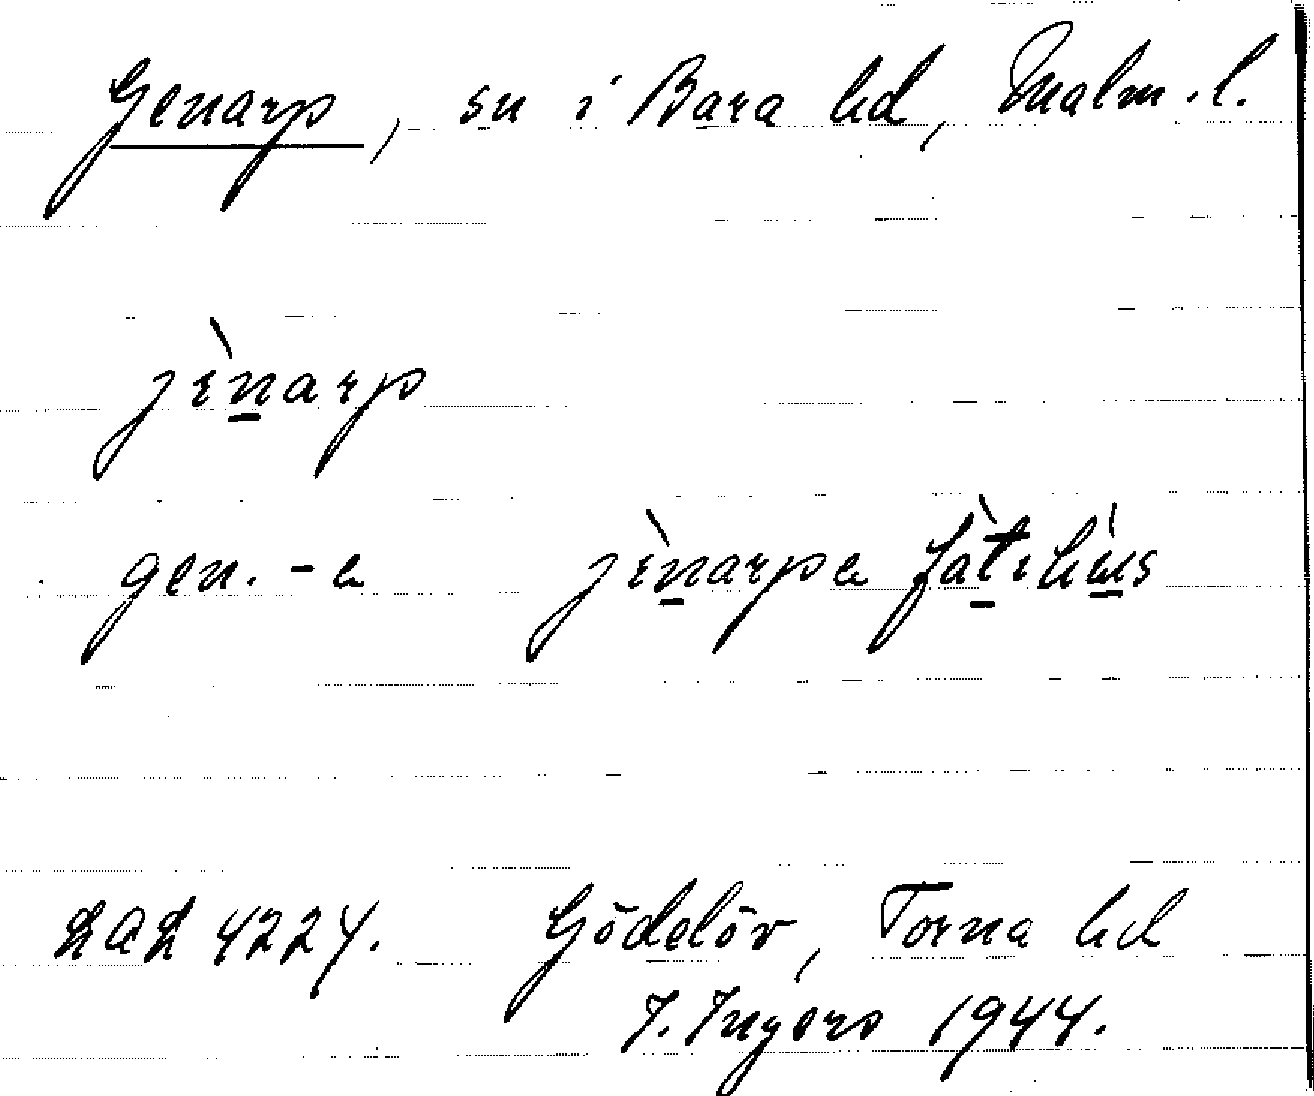 Genarp, sn i Bara hd, Malm.l.
jènarp
gen. -a jènarpa fàtihús
LAL 4224. Gödelöv, Torna hd
I. Ingers 1944.